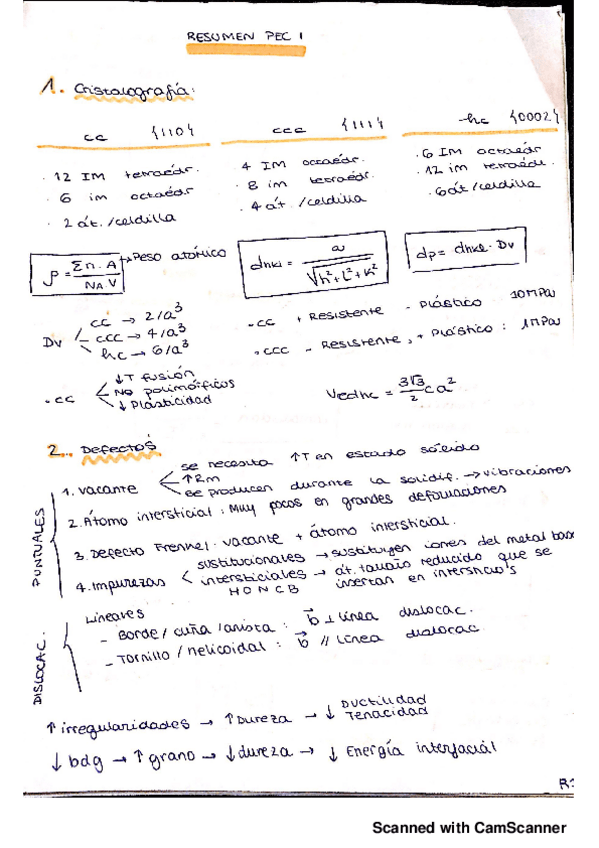 RESUMEN PEC 1
1. Cristalografía:
cc {110} ccc {111} hc {0002}
· 12 IM tetraédr. · 4 IM octaédr. · 6 IM octaédr
· 6 im octaédr · 8 im tetraédr. · 12 im tetraédr.
· 2 át. /celdilla · 4 át. /celdilla · 6 át /celdilla
ρ = Σn.A / NA V → Peso atómico
dhkl = a / √h²+l²+k²
dp = dhkl · Dv
Dv cc → 2/a³
ccc → 4/a³
hc → 6/a³
· cc + Resistente - Plástico 10MPa
· ccc - Resistente, + Plástico : 1MPa
· cc ↓T fusión
No polimórficos
↓ Plasticidad
Vcdhc = 3√3/2 ca²
2. Defectos
PUNTUALES
1. Vacante se necesita ↑T en estado sólido
se producen durante la solidif. → vibraciones
2. Átomo intersticial : Muy pocos en grandes deformaciones
3. Defecto Frenkel : vacante + átomo intersticial.
4. Impurezas sustitucionales → sustituyen iones del metal base
intersticiales → át. tamaño reducido que se
HONCB insertan en intersticios
DISLOCAC.
Lineares
- Borde / cuña / arista : b⃗ ⊥ línea dislocac.
- Tornillo / helicoidal : b⃗ // línea dislocac.
↑ irregularidades → ↑ Dureza → ↓ Ductilidad
Tenacidad
↓ bdg → ↑ grano → ↓ dureza → ↓ Energía interfacial
Scanned with CamScanner